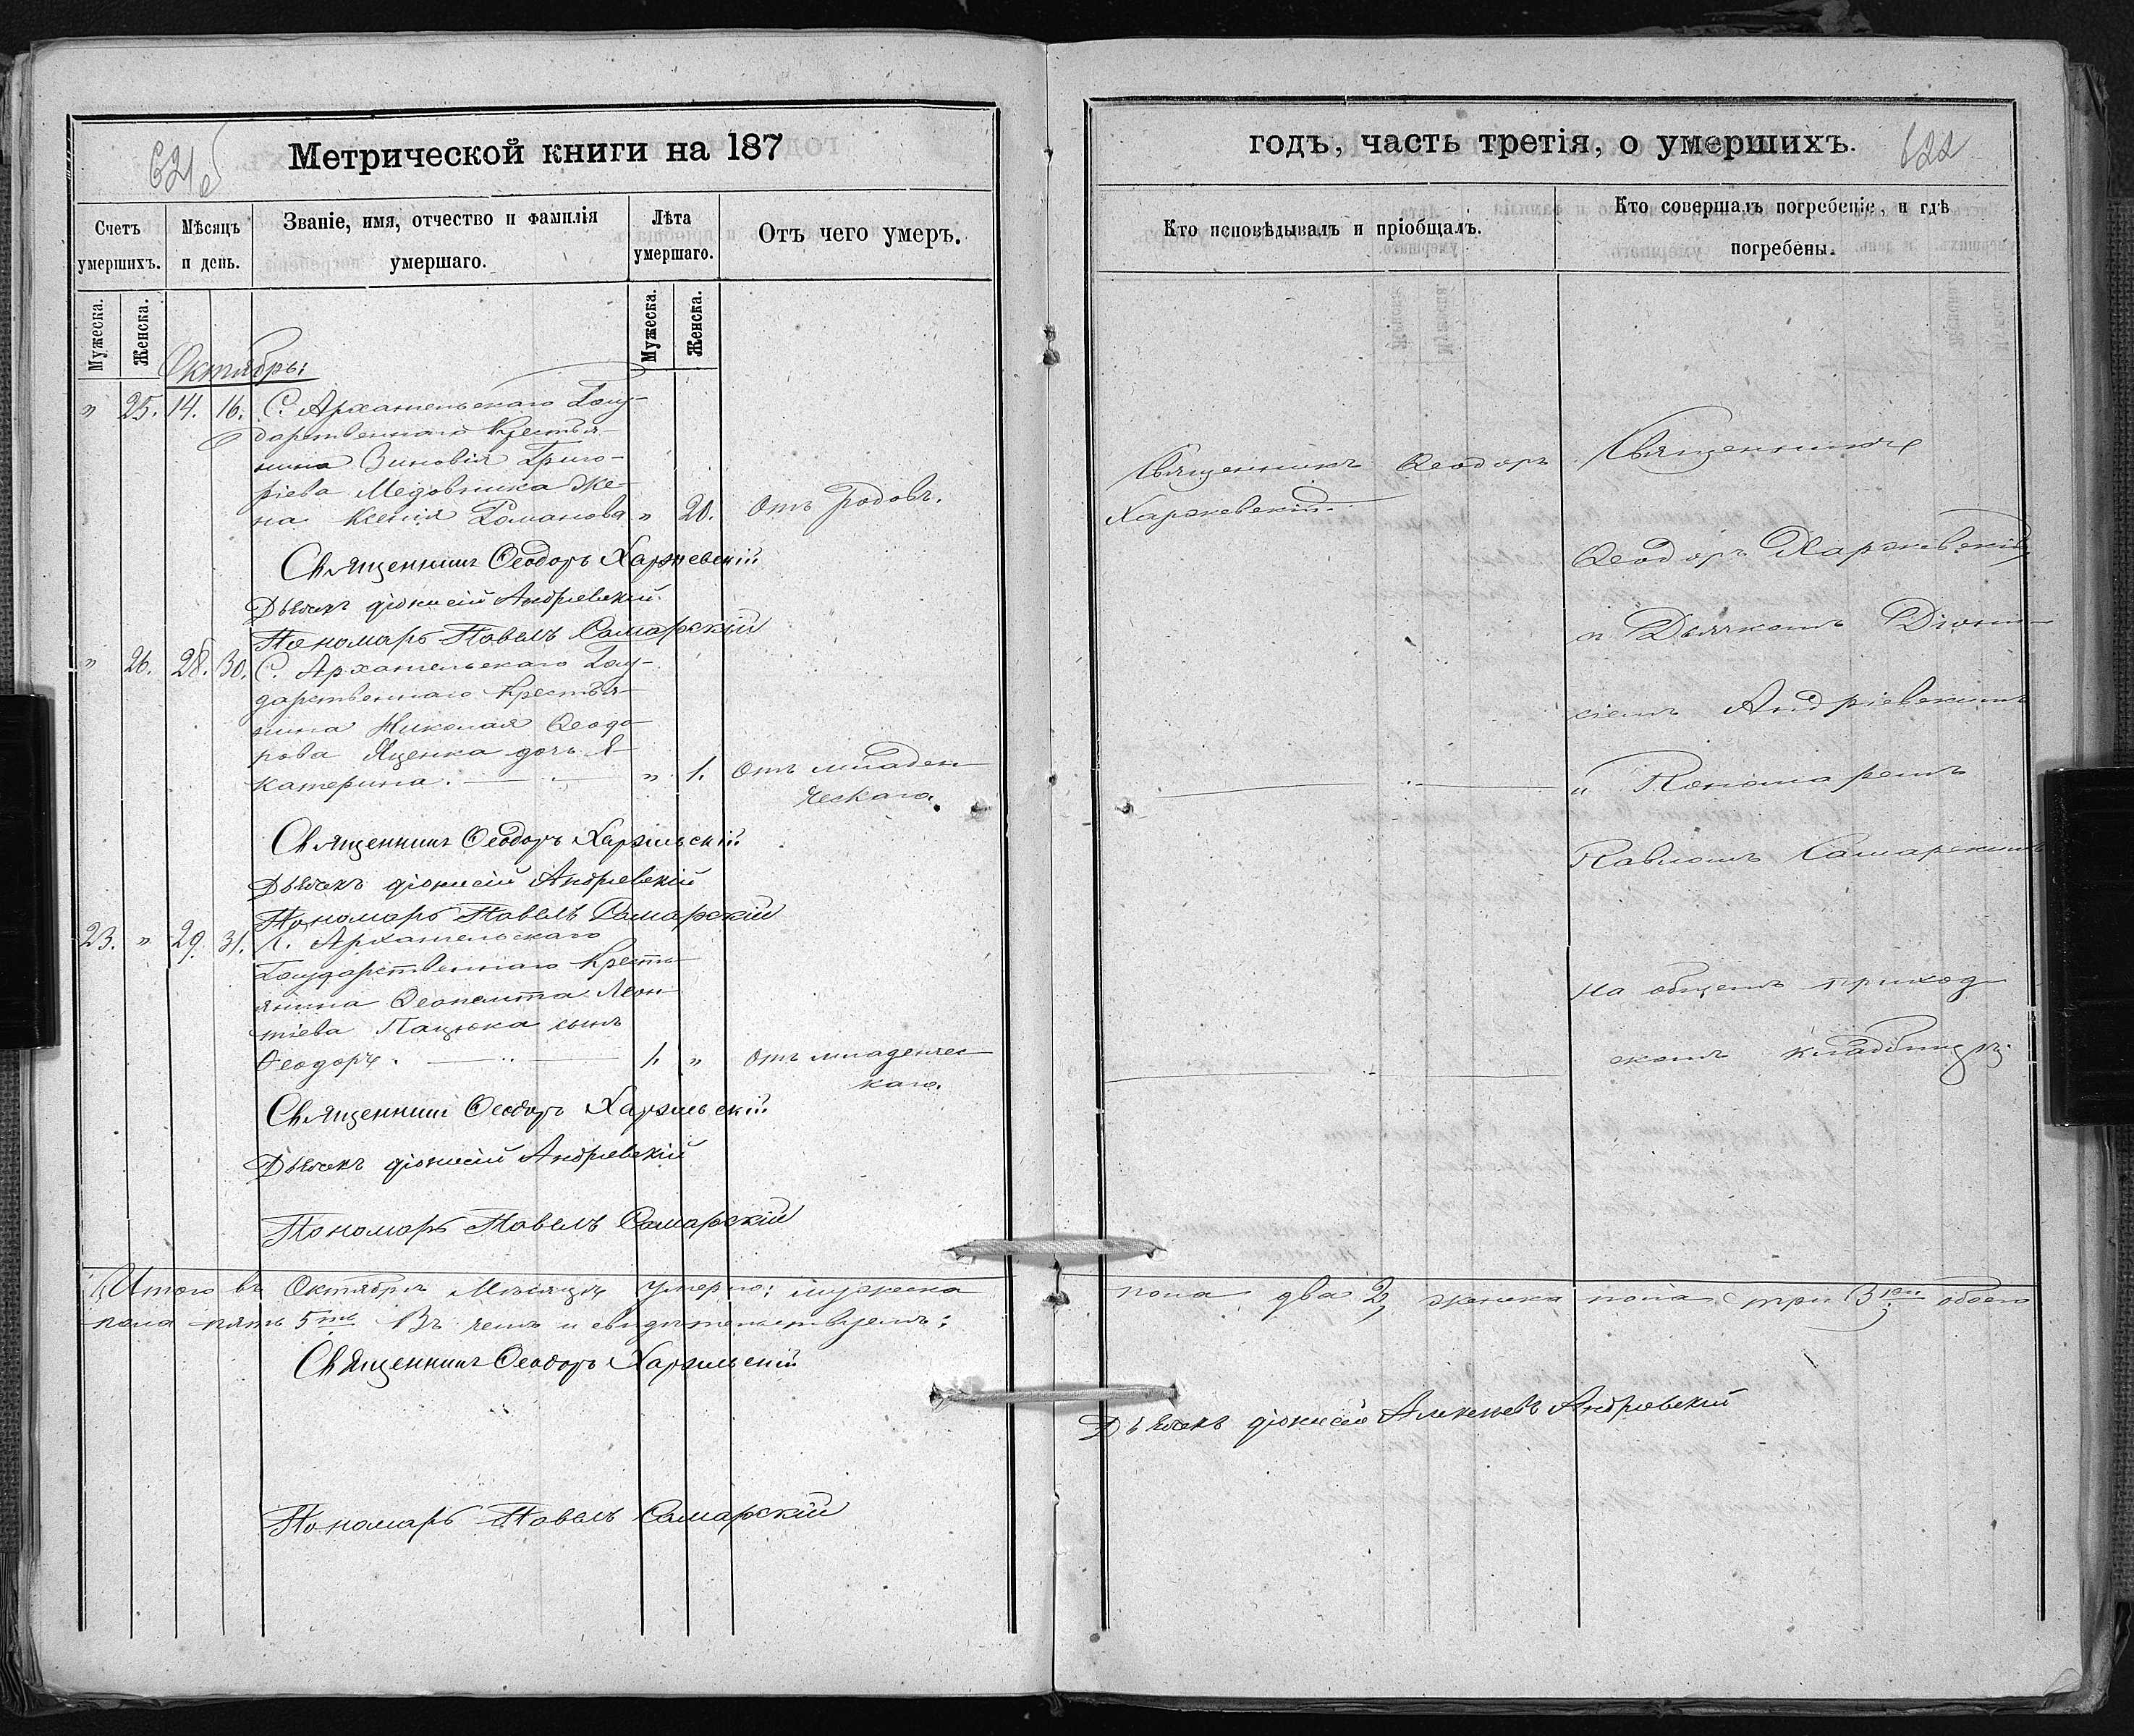 621об
Метрической книги на 187
Счетъ умершихъ.
Мѣсяцъ и день.
Званіе, имя, отчество и фамилія умершаго.
Лѣта умершаго.
Отъ чего умеръ.
Мужеска.
Женска.
Мужеска.
Женска.
Октябрь:
" 25. 14. 16. С. Архангельскаго Госу-
дарственнаго Крестья-
нина Зиновія Григо-
ріева Медовника же-
на Ксенія Романова " 20. Отъ родовъ.
Священникъ Ѳеодоръ Харжевскій
Дьячекъ Діонисій Андріевскій
Пономарь Павелъ Самарскій
" 26. 28. 30. С. Архангельскаго Госу-
дарственнаго Крестья-
нина Николая Ѳеодо-
рова Яценка дочь Е-
катерина. " 1. Отъ младен-
ческаго.
Священникъ Ѳеодоръ Харжевскій
Дьячекъ Діонисій Андріевскій
Пономарь Павелъ Самарскій
23. " 29. 31. С. Архангельскаго
Государственнаго Кресть-
янина Ѳеопемта Леон-
тіева Пацюка сынъ
Ѳеодоръ. 1. " Отъ младенчес-
каго.
Священникъ Ѳеодоръ Харжевскій
Дьячекъ Діонисій Андріевскій
Пономарь Павелъ Самарскій
Итого въ Октябрѣ Мѣсяцѣ умерло: мужеска
пола пять 5ть Въ чемъ и свидѣтельствуемъ:
Священникъ Ѳеодоръ Харжевскій
Пономарь Павелъ Самарскій
годъ, часть третія, о умершихъ.
622
Кто исповѣдывалъ и пріобщалъ.
Кто совершалъ погребеніе, и гдѣ погребены.
Священникъ Ѳеодоръ
Харжевскій.
Священникъ
Ѳеодоръ Харжевскій
съ Дьячкомъ Діони-
сіемъ Андріевскимъ
и Пономаремъ
Павломъ Самарскимъ
На общемъ приход-
скомъ кладбищѣ.
пола два 2, женска пола три 3ри обоего
Дьячекъ Діонисій Алексѣевъ Андріевскій